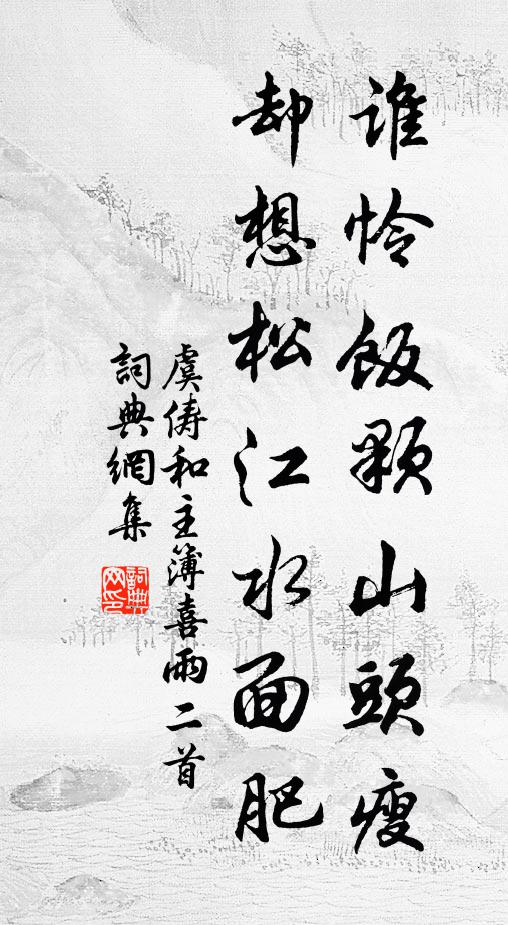 誰怜飯顆山頭瘦
却想松江水面肥
虞儔和主簿喜雨二首
詞典網集
詞典网印